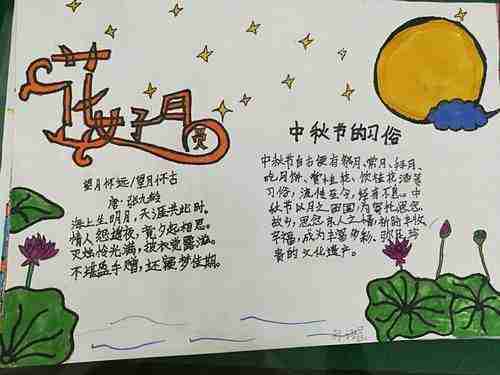 花好月圆
望月怀远/望月怀古
唐·张九龄
海上生明月,天涯共此时。
情人怨遥夜,竟夕起相思。
灭烛怜光满,披衣觉露滋。
不堪盈手赠,还寝梦佳期。
中秋节的习俗
中秋节自古便有祭月、赏月、拜月、
吃月饼、赏桂花、饮桂花酒等
习俗,流传至今,经久不息。中
秋节以月之圆圆为寄托思念
故乡,思念亲人之情,祈盼丰收
幸福,成为丰富多彩、弥足珍
贵的文化遗产。